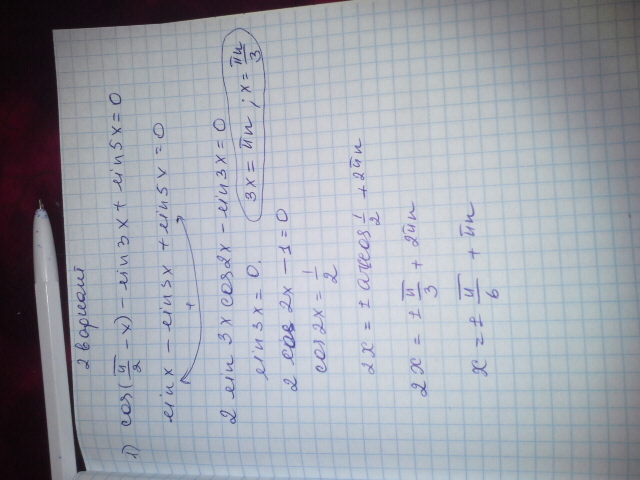 2 вариант
1) cos(π/2 - x) - sin3x + sin5x = 0
sinx - sin3x + sin5x = 0
+
2 sin3x cos2x - sin3x = 0
sin3x = 0. 3x = πn ; x = πn/3
2 cos 2x - 1 = 0
cos2x = 1/2
2x = ± arccos 1/2 + 2πn
2x = ± π/3 + 2πn
x = ± π/6 + πn